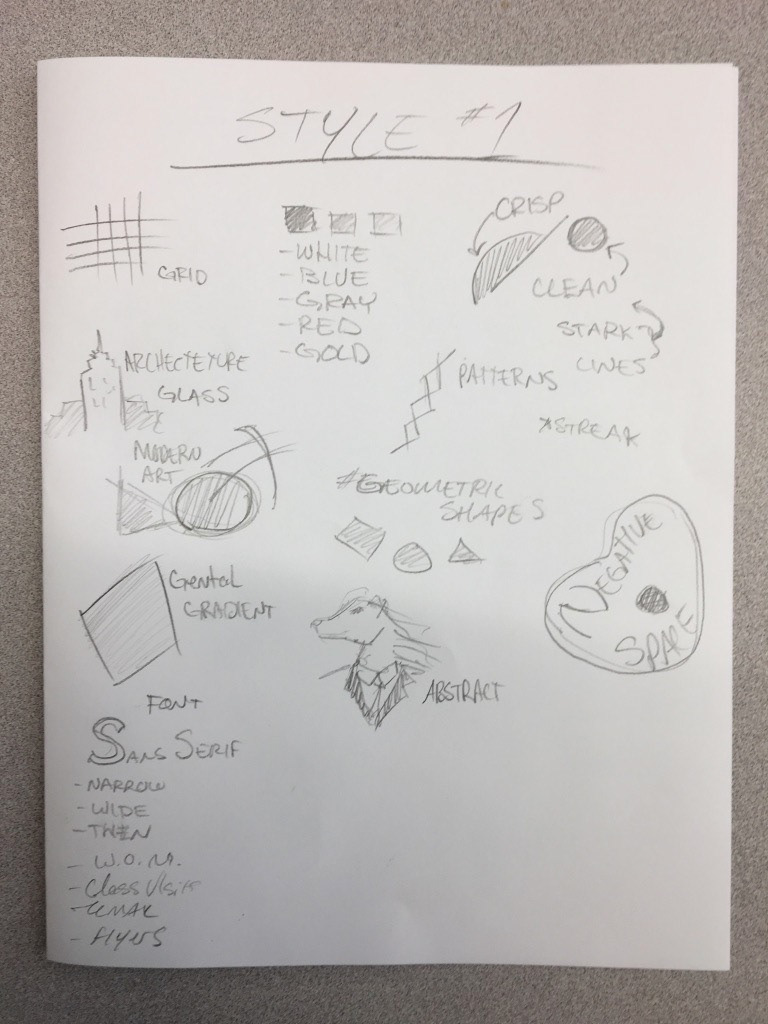 STYLE #1
GRID
-WHITE
-BLUE
-GRAY
-RED
-GOLD
CRISP
CLEAN
STARK
LINES
ARCHECTETURE
GLASS
PATTERNS
*STREAK
MODERN
ART
#GEOMETRIC
SHAPES
NEGATIVE
SPACE
GRADIENT
ABSTRACT
FONT
SANS SERIF
-NARROW
-WIDE
- W.O.M.
-Class Visits
- flyers